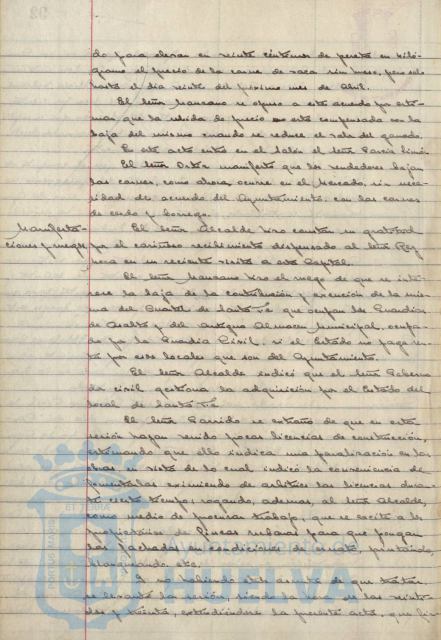 do para elevar en veinte céntimos de peseta en kiló-
gramo el precio de la carne de vaca sin hueso, pero solo
hasta el dia veinte del próximo mes de Abril.
El Señor Manzano se opuso a este acuerdo por estimar
que la subida de precio está compensada con la
baja del mismo cuando se reduce el valor del ganado.
En este acto entra en el salón el Señor García
El Señor manifestó que los vendedores bajan
las carnes, como ahora ocurre en el Mercado, sin nece-
sidad de acuerdo del Ayuntamiento, con las carnes
de cerdo y borrego.
Manifesta-
ciones y ruegos
El Señor Alcalde hizo constar su gratitud
por el cariñoso recibimiento dispensado al Señor
en su reciente visita a esta Capital.
El Señor Manzano hizo el ruego de que se inte-
rese la baja de la contribución y exención de la mis-
ma del Cuartel de Santa Fé que ocupan los Guardias
de Asalto y del antiguo Almacen Municipal, ocupa-
do por la Guardia Civil, si el Estado no paga ren-
ta por esos locales que son del Ayuntamiento.
El Señor Alcalde indicó que el Señor Goberna-
dor civil gestiona la adquisición por el Estado del
local de Santa Fé
El Señor Garrido se extrañó de que en esta
sesión hayan venido pocas licencias de construcción,
estimando que ello indica una paralización en las
obras en vista de lo cual indicó la conveniencia de
fomentarlas eximiendo de arbitrios las licencias duran-
te cierto tiempo; rogando, ademas, al Señor Alcalde,
como medio de procurar trabajo, que se excite a los
propietarios de fincas urbanas para que pongan
las fachadas en condiciones de ornato, pintando,
blanqueando etc.
Y no habiendo otro asunto de que tratar
se levantó la sesión, siendo la hora de las veinte
dos y treinta, extendiéndose la presente acta, que fir
PORTUS MARIS
ET TERRÆ
Ayuntamiento de
HUELVA